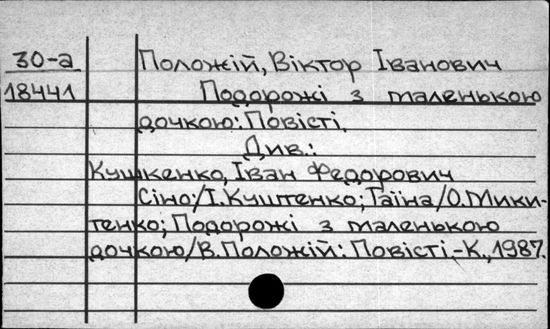 30-а Положій, Віктор Іванович
18441 Подорожі з маленькою
дочкою: Повісті.
Див.:
Кушкенко, Іван Федорович
Сіно:/І.Куштенко; Таїна/О.Мики-
тенко; Подорожі з маленькою
дочкою/В.Положій: Повісті.-К., 1987.